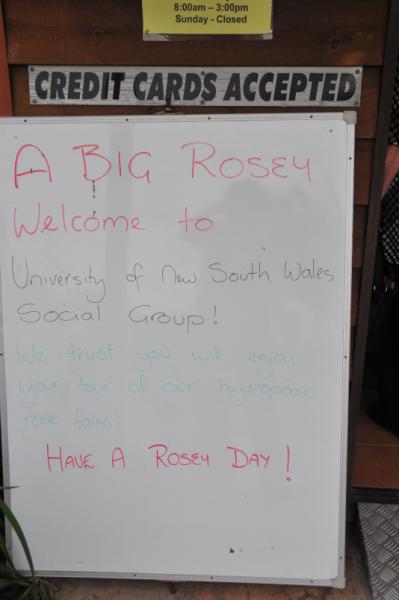 8:00am – 3:00pm
Sunday - Closed
CREDIT CARDS ACCEPTED
A BIG ROSEY
Welcome to
University of New South Wales
Social Group!
We trust you will enjoy
your tour of our hydroponic
rose farm!
HAVE A ROSEY DAY!